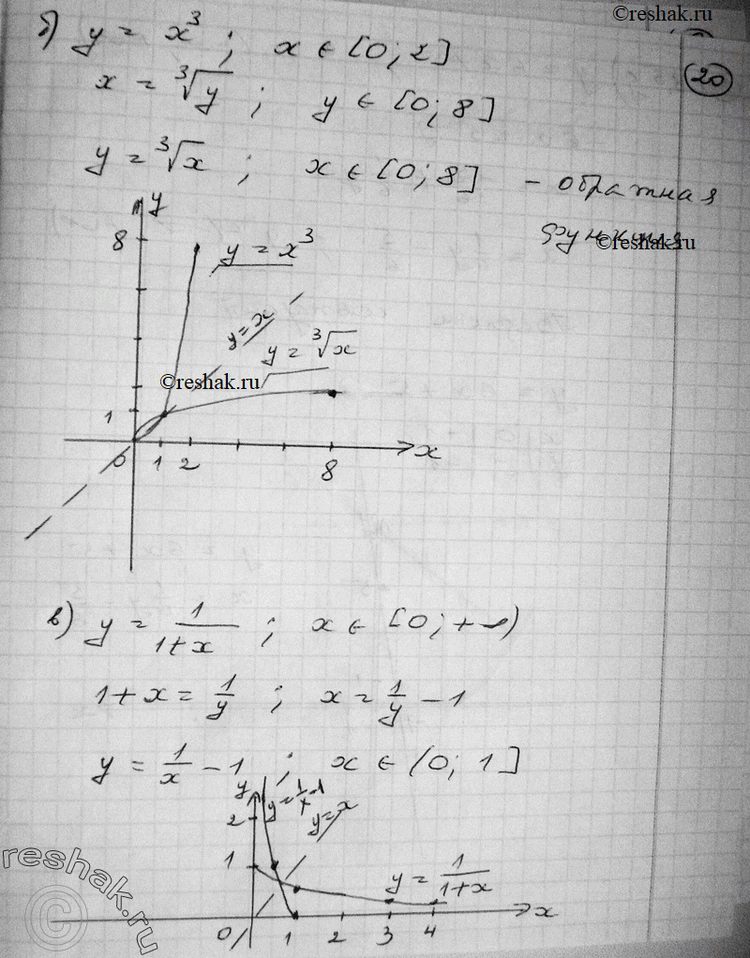 ©reshak.ru
б) y = x³ ; x ∈ [0; 2]
20
x = ∛y ; y ∈ [0; 8]
y = ∛x ; x ∈ [0; 8] - обратная
функция
©reshak.ru
y
8
y = x³
y = x
y = ∛x
©reshak.ru
1
0 1 2 8 x
в) y = 1/(1+x) ; x ∈ [0; +∞)
1 + x = 1/y ; x = 1/y - 1
y = 1/x - 1 ; x ∈ (0; 1]
y
y = 1/x - 1
y = x
2
1
y = 1/(1+x)
0 1 2 3 4 x
reshak.ru